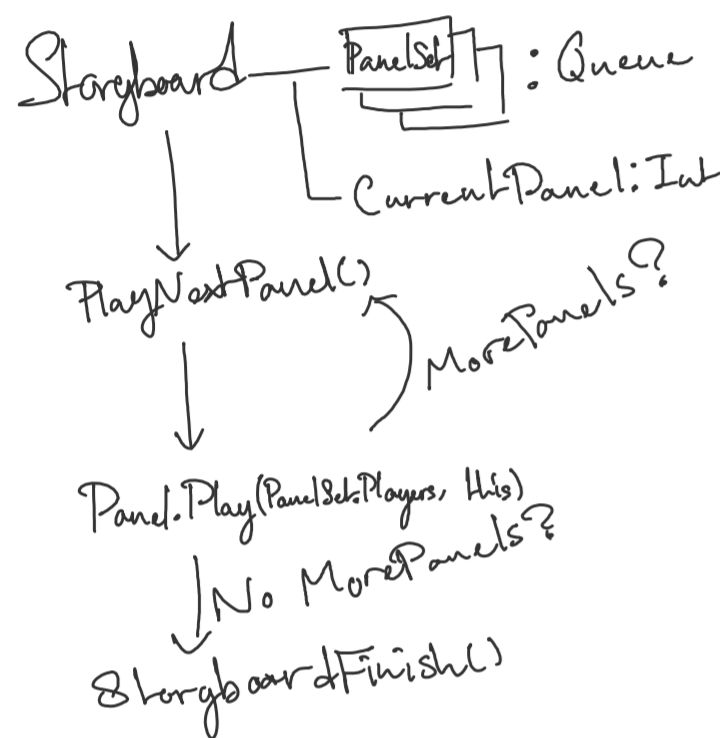 Storyboard PanelSet : Queue
CurrentPanel: Int
PlayNextPanel()
MorePanels?
Panel.Play(PanelSet.Players, this)
No MorePanels?
StoryboardFinish()